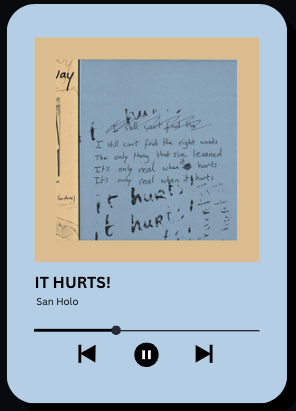 lay
I still can't find the
I still can't find the right words
The only thing that I've learned
It's only real when it hurts
It's only real when it hurts
it hurts
it hurts
IT HURTS!
San Holo